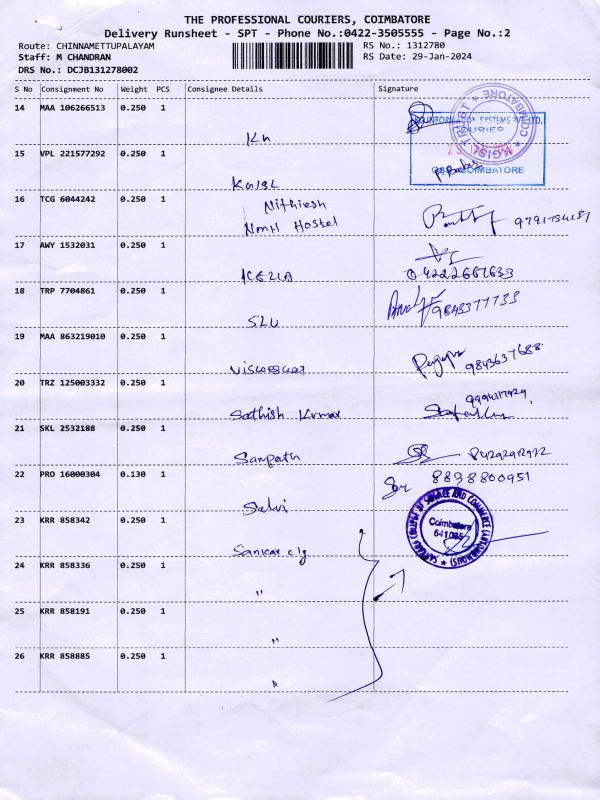 THE PROFESSIONAL COURIERS, COIMBATORE
Delivery Runsheet - SPT - Phone No.:0422-3505555 - Page No.:2
Route: CHINNAMETTUPALAYAM
RS No.: 1312780
Staff: M CHANDRAN
RS Date: 29-Jan-2024
DRS No.: DCJB131278002
S No Consignment No Weight PCS Consignee Details Signature
14 MAA 106266513 0.250 1
INFORMATION SYSTEMS PVT LTD.
COURIER
COIMBATORE
15 VPL 221577292 0.250 1
16 TCG 6044242 0.250 1 Nithiesh
NMH Hostel
17 AWY 1532031 0.250 1
18 TRP 7704861 0.250 1
SLU 9843377733
19 MAA 863219010 0.250 1
9843637688
20 TRZ 125003332 0.250 1
Sathish Kumar
21 SKL 2532188 0.250 1
Sampath
22 PRO 16000304 0.130 1 8838800951
Selvi
23 KRR 858342 0.250 1
Sankar clg
SANKARA COLLEGE OF SCIENCE AND COMMERCE (AUTONOMOUS)
Coimbatore
641 035
24 KRR 858336 0.250 1
"
25 KRR 858191 0.250 1
"
26 KRR 858885 0.250 1
"